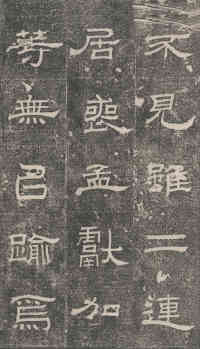 不見雖二連
居喪孟獻加
等無㠯踰焉